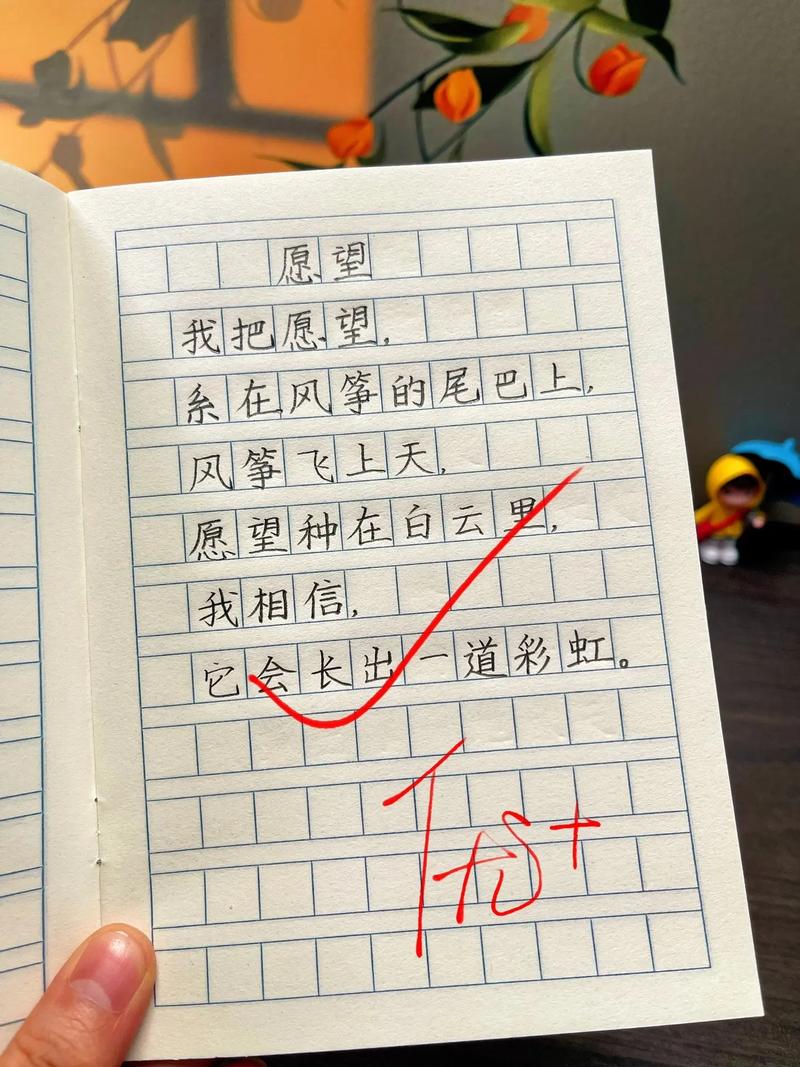 愿望
我把愿望，
系在风筝的尾巴上，
风筝飞上天，
愿望种在白云里，
我相信，
它会长出一道彩虹。
优+